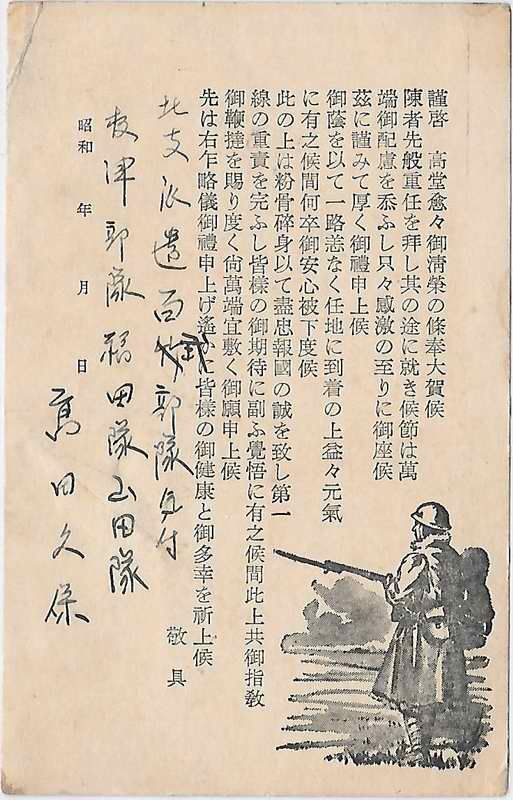 謹啓　高堂愈々御淸榮の條奉大賀候
陳者先般重任を拜し其の途に就き候節は萬
端御配慮を忝ふし只々感激の至りに御座候
茲に謹みて厚く御禮申上候
御蔭を以て一路恙なく任地に到着の上益々元氣
に有之候間何卒御安心被下度候
此の上は粉骨碎身以て盡忠報國の誠を致し第一
線の重責を完ふし皆樣の御期待に副ふ覺悟に有之候間此上共御指敎
御鞭撻を賜り度く尙萬端宜敷く御願申上候
先は右乍略儀御禮申上げ遙かに皆樣の御健康と御多幸を祈上候
敬具
北支派遣百武部隊氣付
昭和　年　月　日
津部隊福田隊山田隊
髙田久保